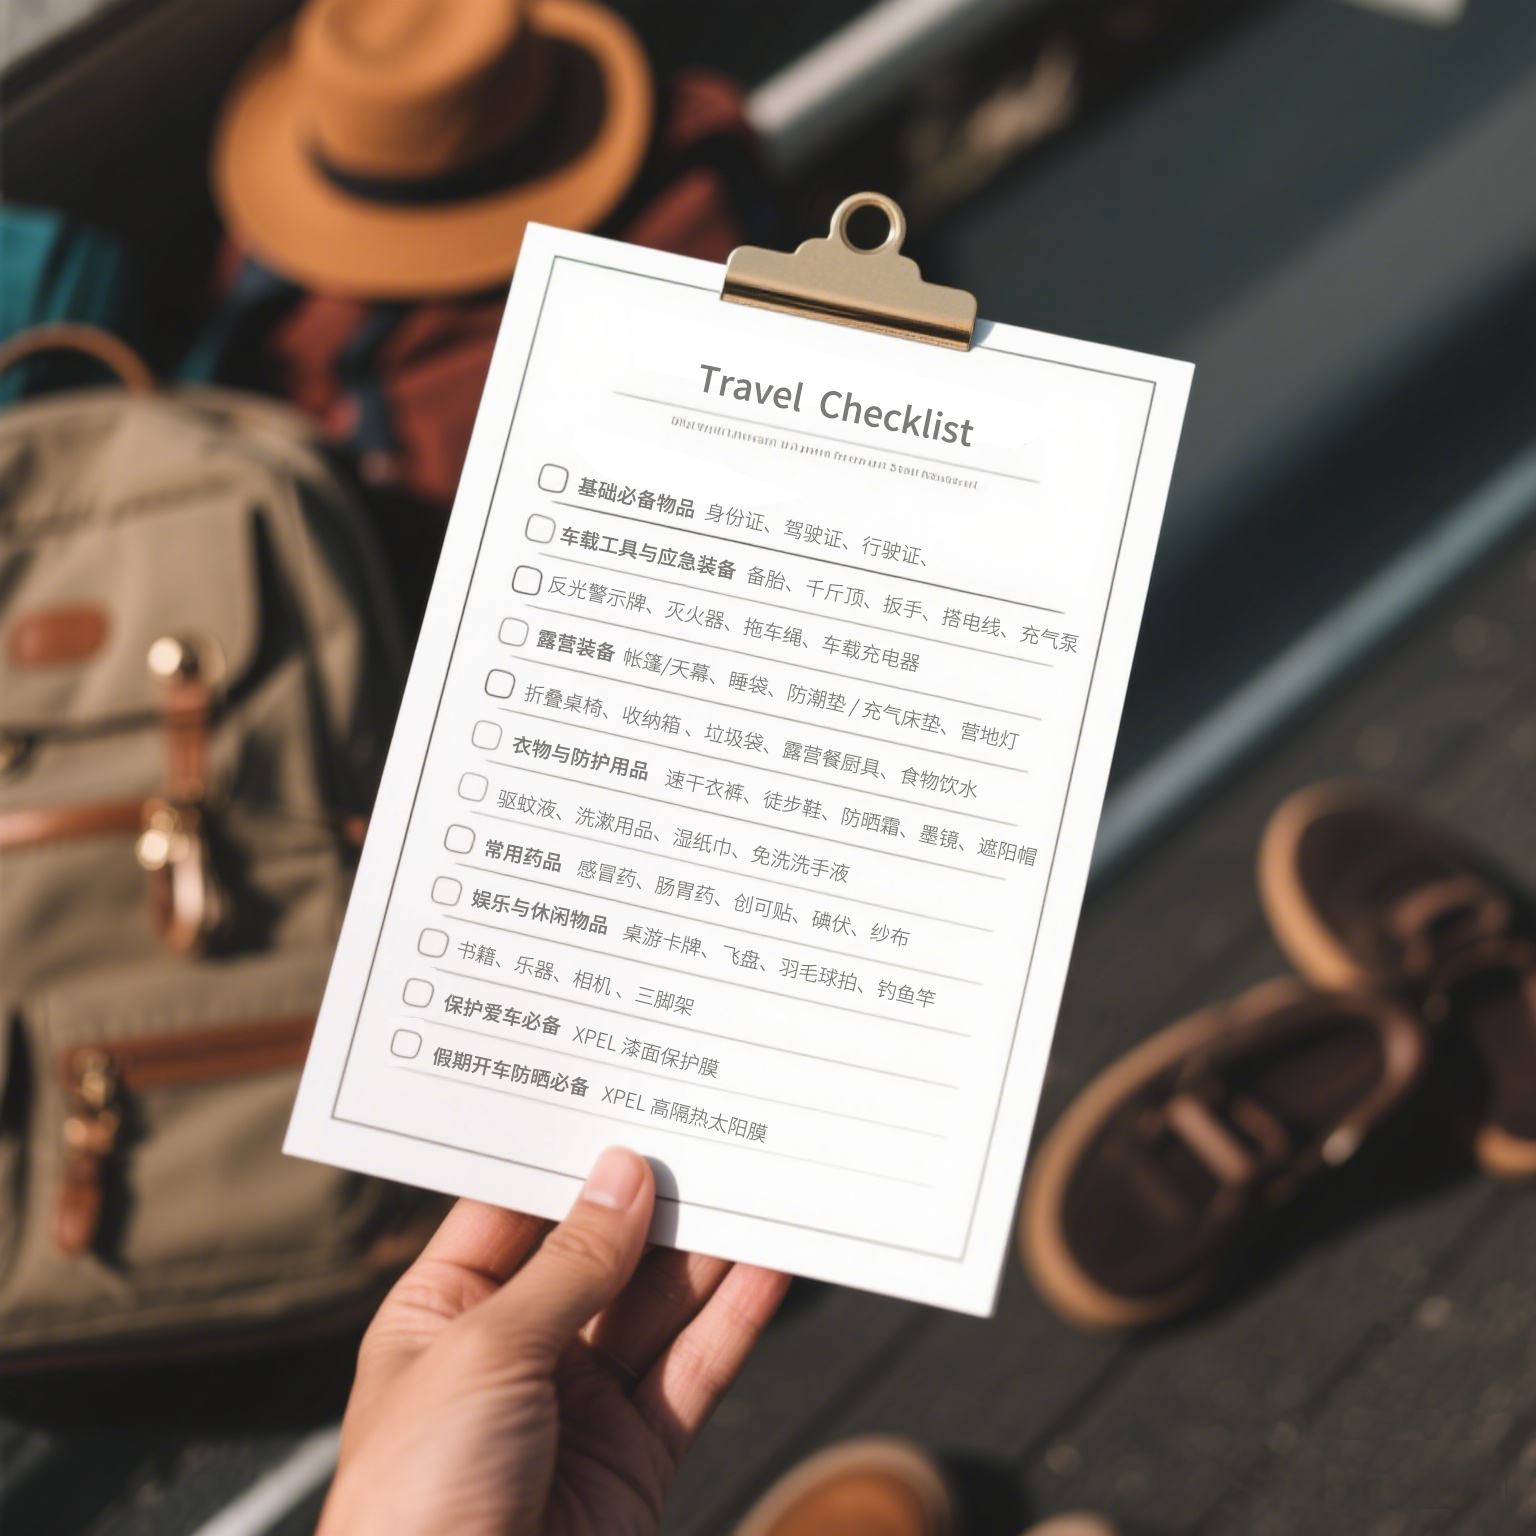 Travel Checklist
基础必备物品 身份证、驾驶证、行驶证、
车载工具与应急装备 备胎、千斤顶、扳手、搭电线、充气泵
反光警示牌、灭火器、拖车绳、车载充电器
露营装备 帐篷/天幕、睡袋、防潮垫 / 充气床垫、营地灯
折叠桌椅、收纳箱 、垃圾袋、露营餐厨具、食物饮水
衣物与防护用品 速干衣裤、徒步鞋、防晒霜、墨镜、遮阳帽
驱蚊液、洗漱用品、湿纸巾、免洗洗手液
常用药品 感冒药、肠胃药、创可贴、碘伏、纱布
娱乐与休闲物品 桌游卡牌、飞盘、羽毛球拍、钓鱼竿
书籍、乐器、相机 、三脚架
保护爱车必备 XPEL 漆面保护膜
假期开车防晒必备 XPEL 高隔热太阳膜